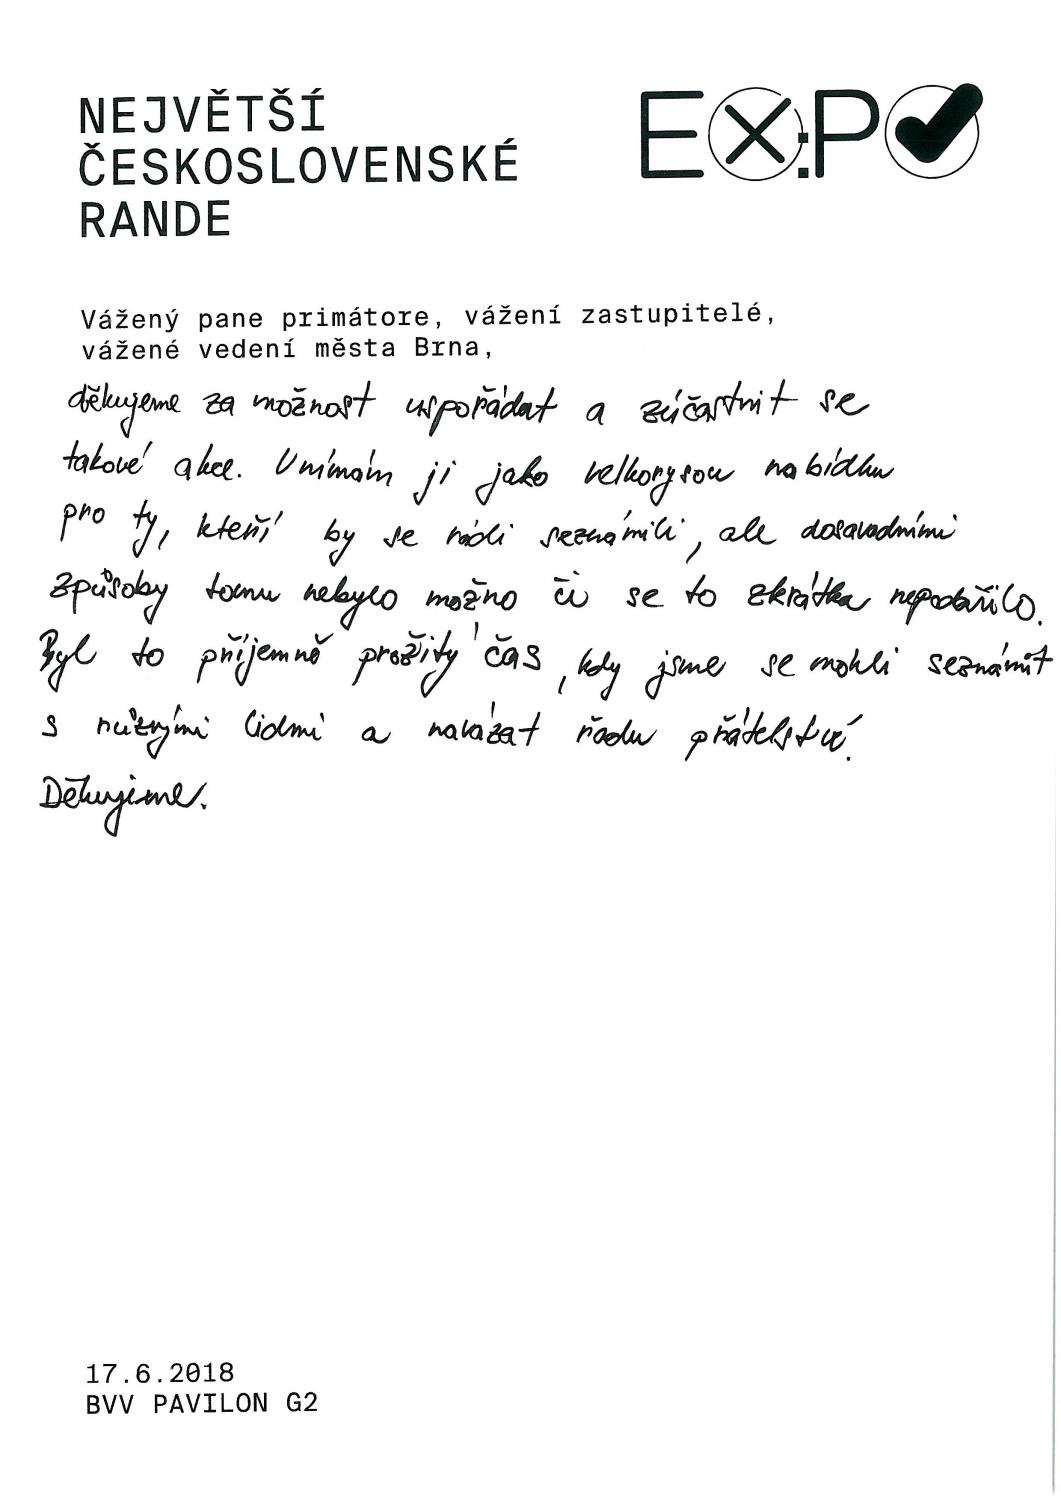 NEJVĚTŠÍ
ČESKOSLOVENSKÉ
RANDE
EX:PO
Vážený pane primátore, vážení zastupitelé,
vážené vedení města Brna,
děkujeme za možnost uspořádat a zúčastnit se
takové akce. Vnímám ji jako velkorysou nabídku
pro ty, kteří by se rádi seznámili, ale dosavadními
způsoby tomu nebylo možno či se to zkrátka nepodařilo.
Byl to příjemně prožitý čas, kdy jsme se mohli seznámit
s různými lidmi a navázat řadu přátelství.
Děkujeme.
17.6.2018
BVV PAVILON G2